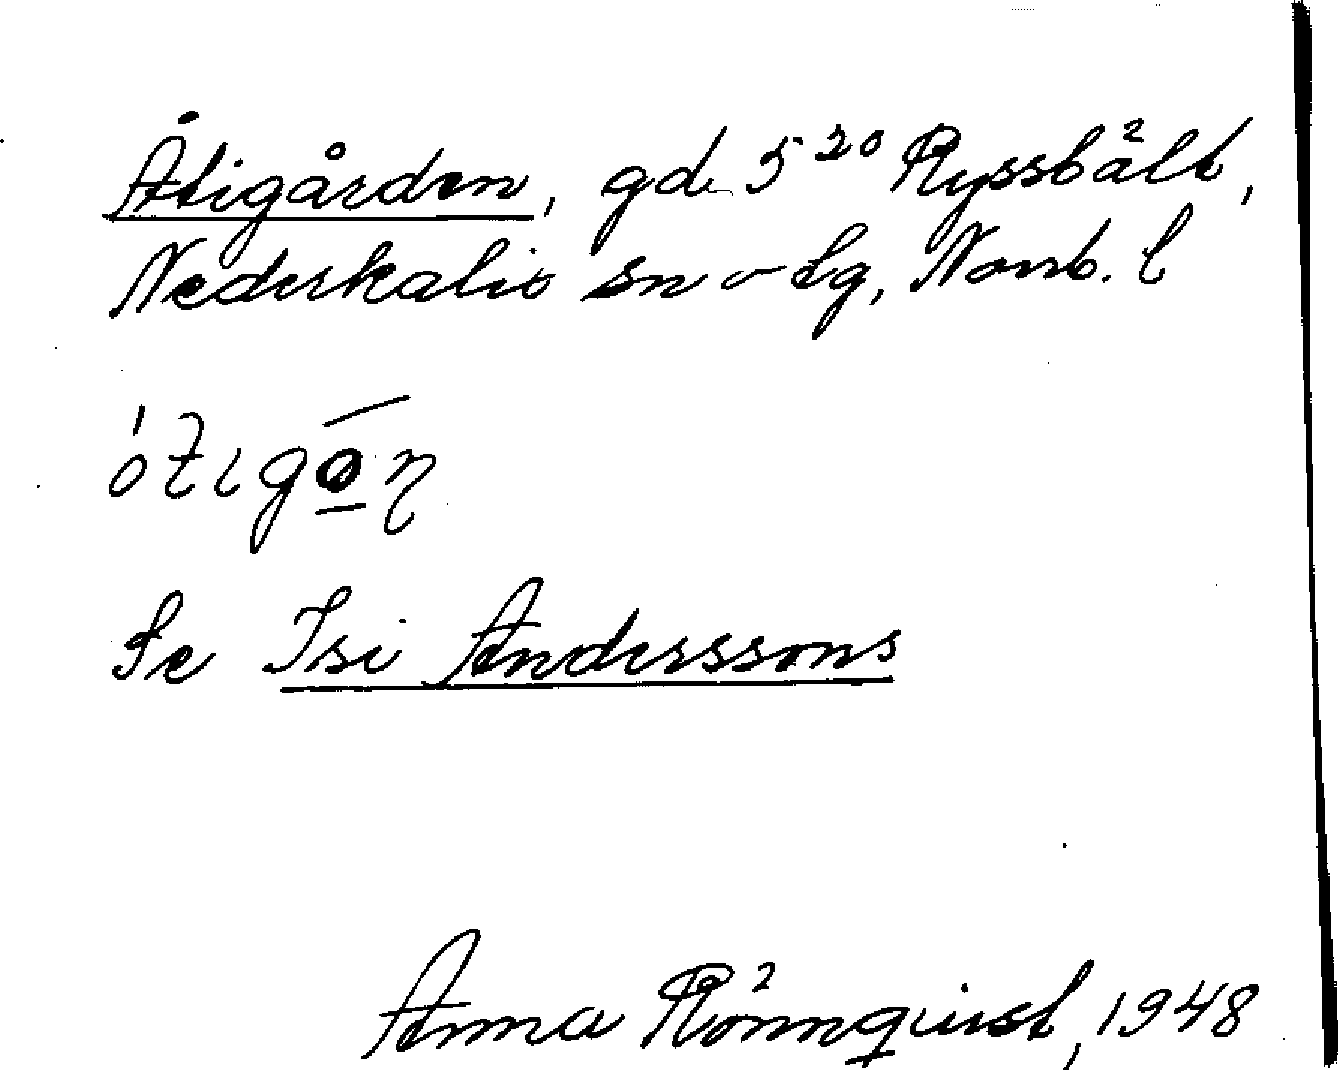 Åtigården, gd. 5²⁰ Ryssbält,
Nederkalix sn o tg, Norrb. l
ótıgǫ́n
Se Isi Anderssons
Anna Rönnqvist, 1948